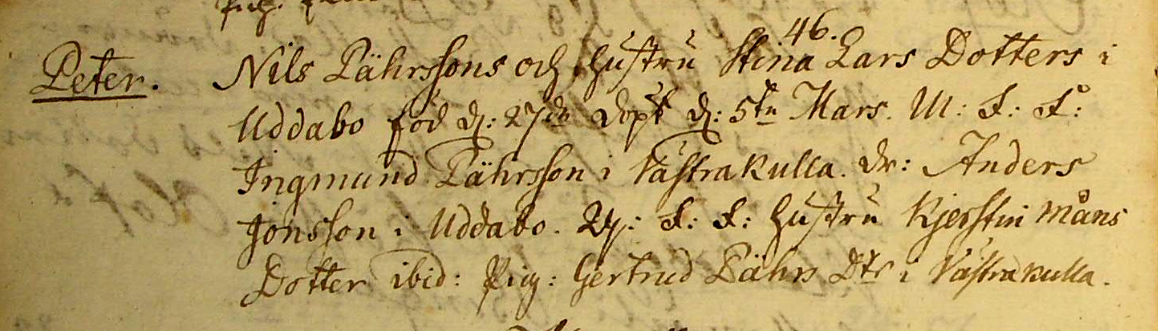 46.
Peter. Nils Pährssons och hustru Stina Lars Dotters i
Uddabo föd d: 27de döpt d: 5te Mars. M: F: F:
Ingmund Pährsson i Västrakulla. Dr: Anders
Jonsson i Uddabo. Q: F: F: hustru Kjerstin Måns
Dotter ibid: Pig: Gertrud Pährs Dtr i Västrakulla.